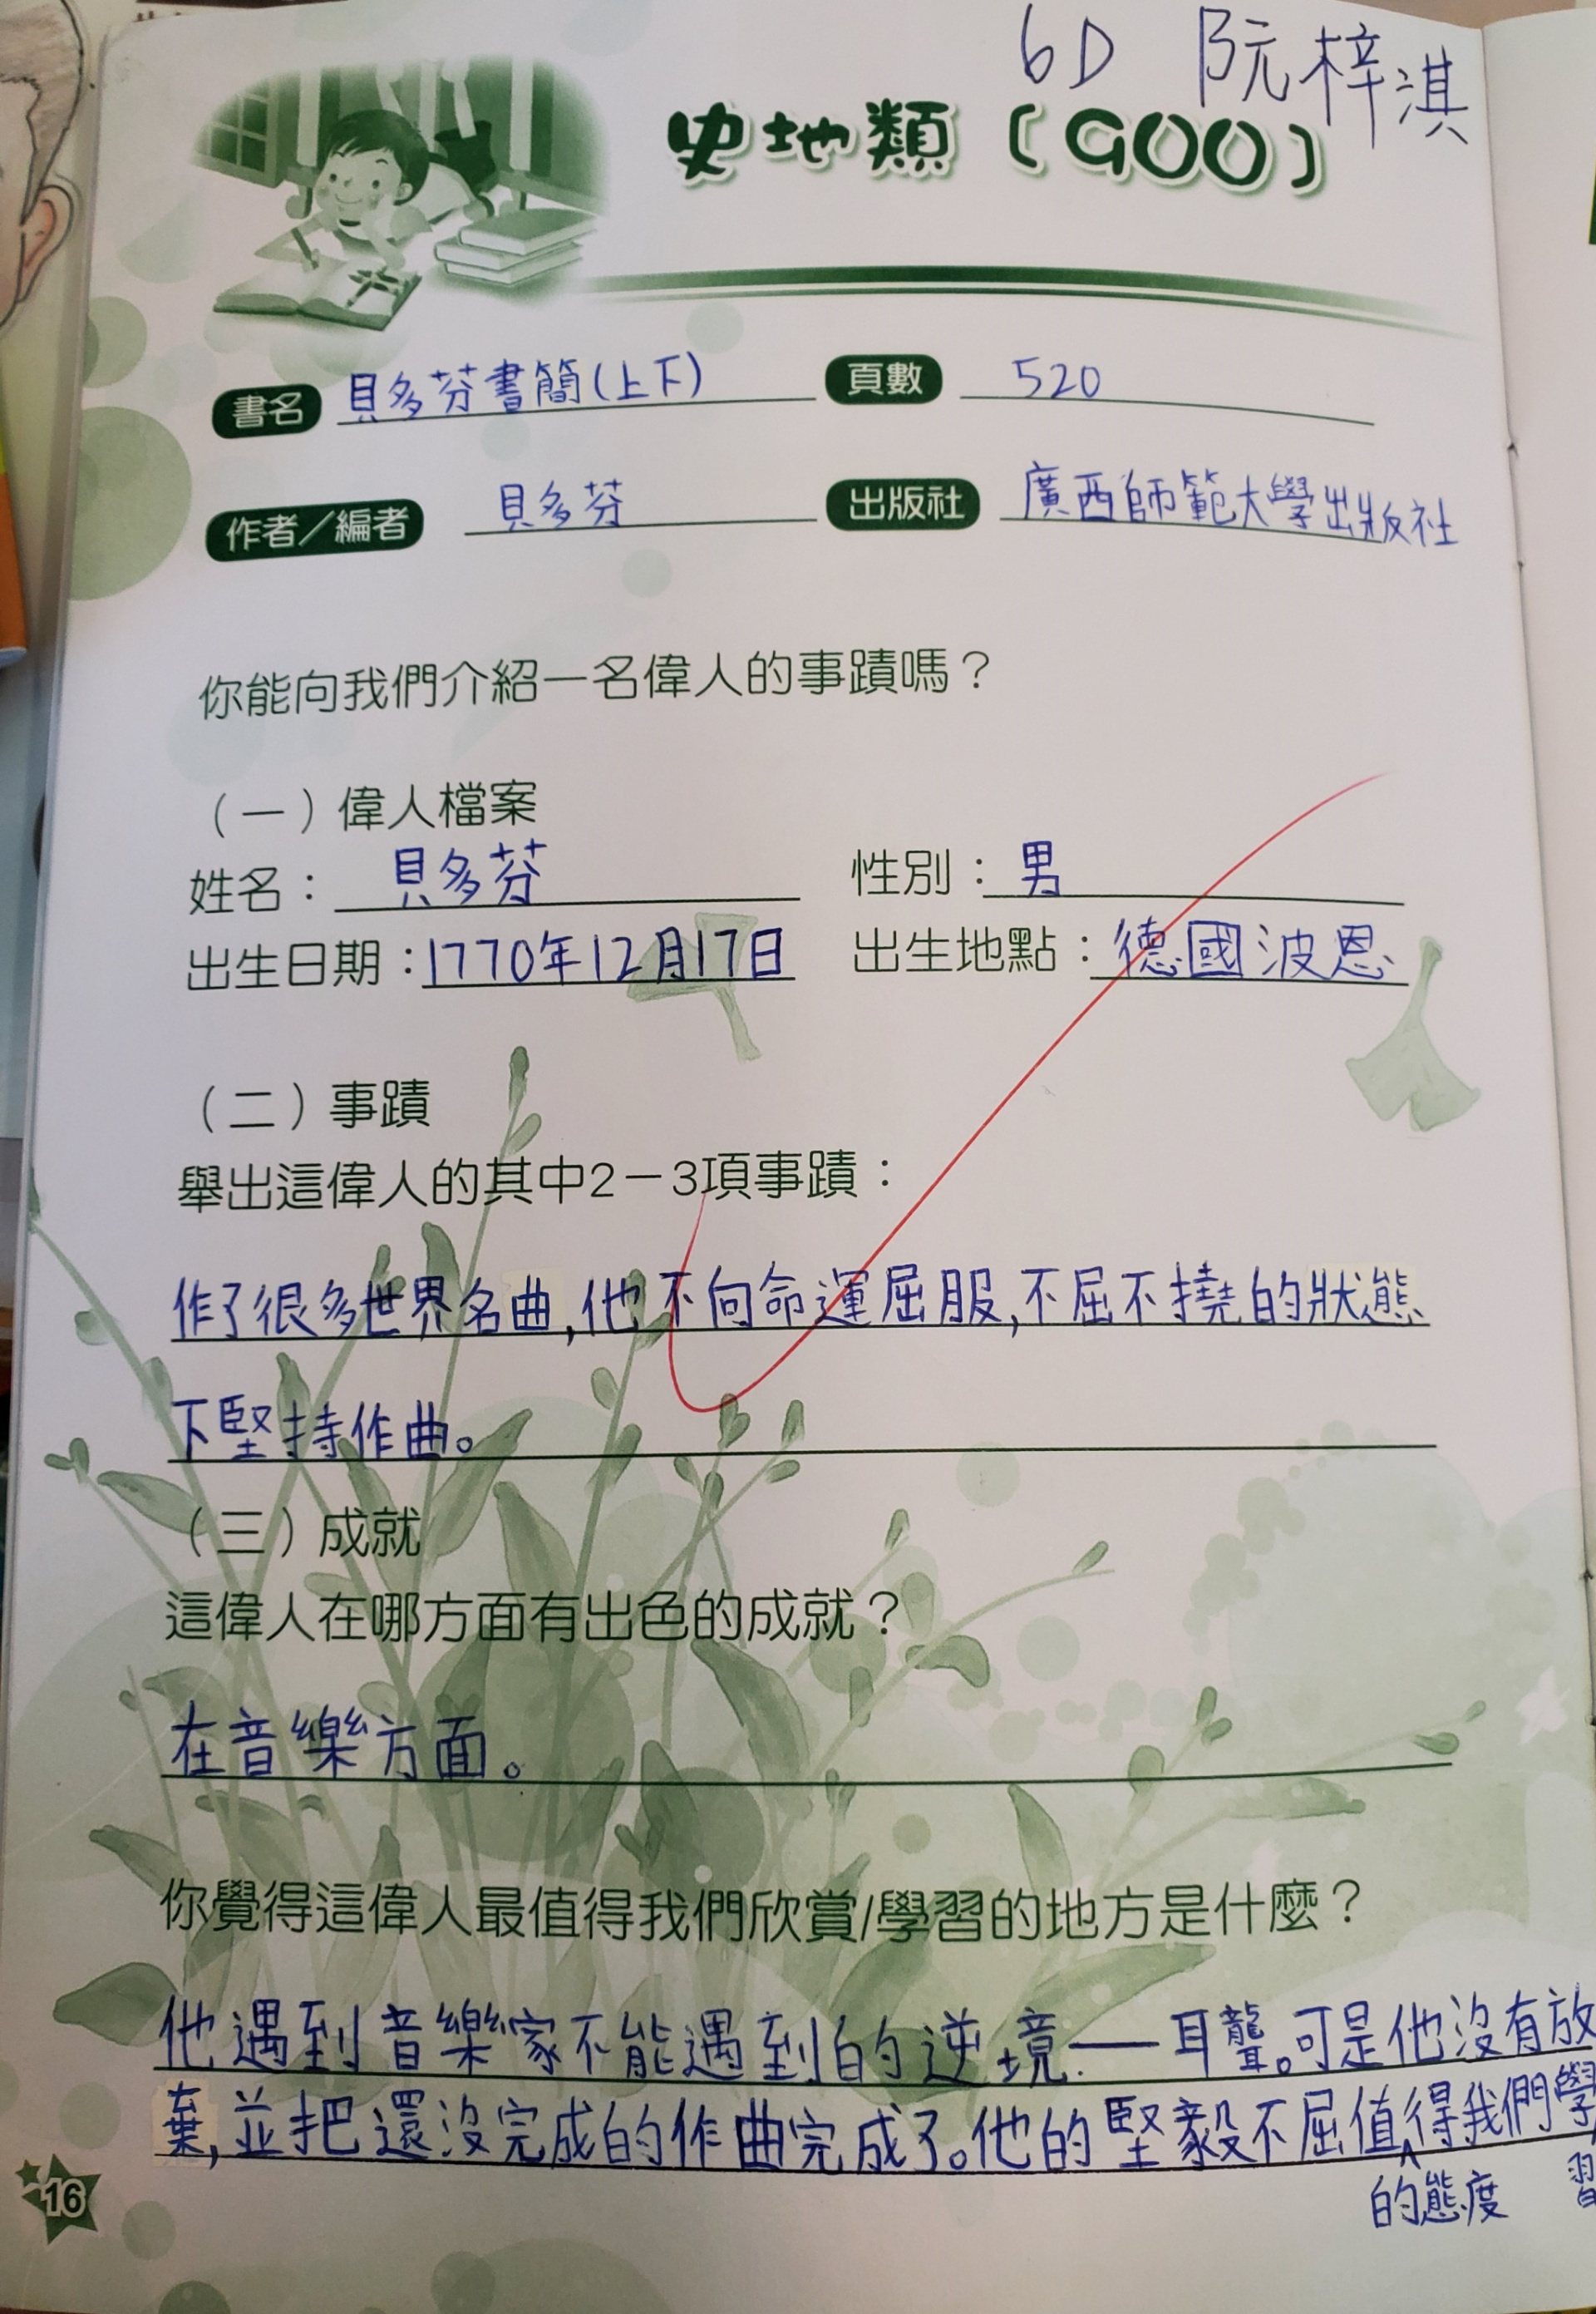 6D 阮梓淇
史地類〔900〕
書名 貝多芬書簡(上下) 頁數 520
作者／編者 貝多芬 出版社 廣西師範大學出版社
你能向我們介紹一名偉人的事蹟嗎？
（一）偉人檔案
姓名： 貝多芬 性別：男
出生日期：1770年12月17日 出生地點：德國波恩
（二）事蹟
舉出這偉人的其中2－3項事蹟：
作了很多世界名曲,他不向命運屈服,不屈不撓的狀態
下堅持作曲。
（三）成就
這偉人在哪方面有出色的成就？
在音樂方面。
你覺得這偉人最值得我們欣賞/學習的地方是什麼？
他遇到音樂家不能遇到的逆境——耳聾。可是他沒有放
棄,並把還沒完成的作曲完成了。他的堅毅不屈值得我們學
的態度 習
16